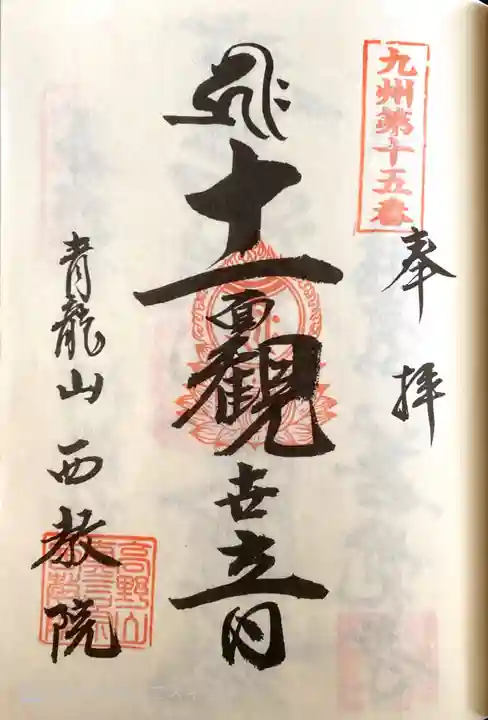 九州第十五番
奉拝
十一面観世音
青龍山 西教院